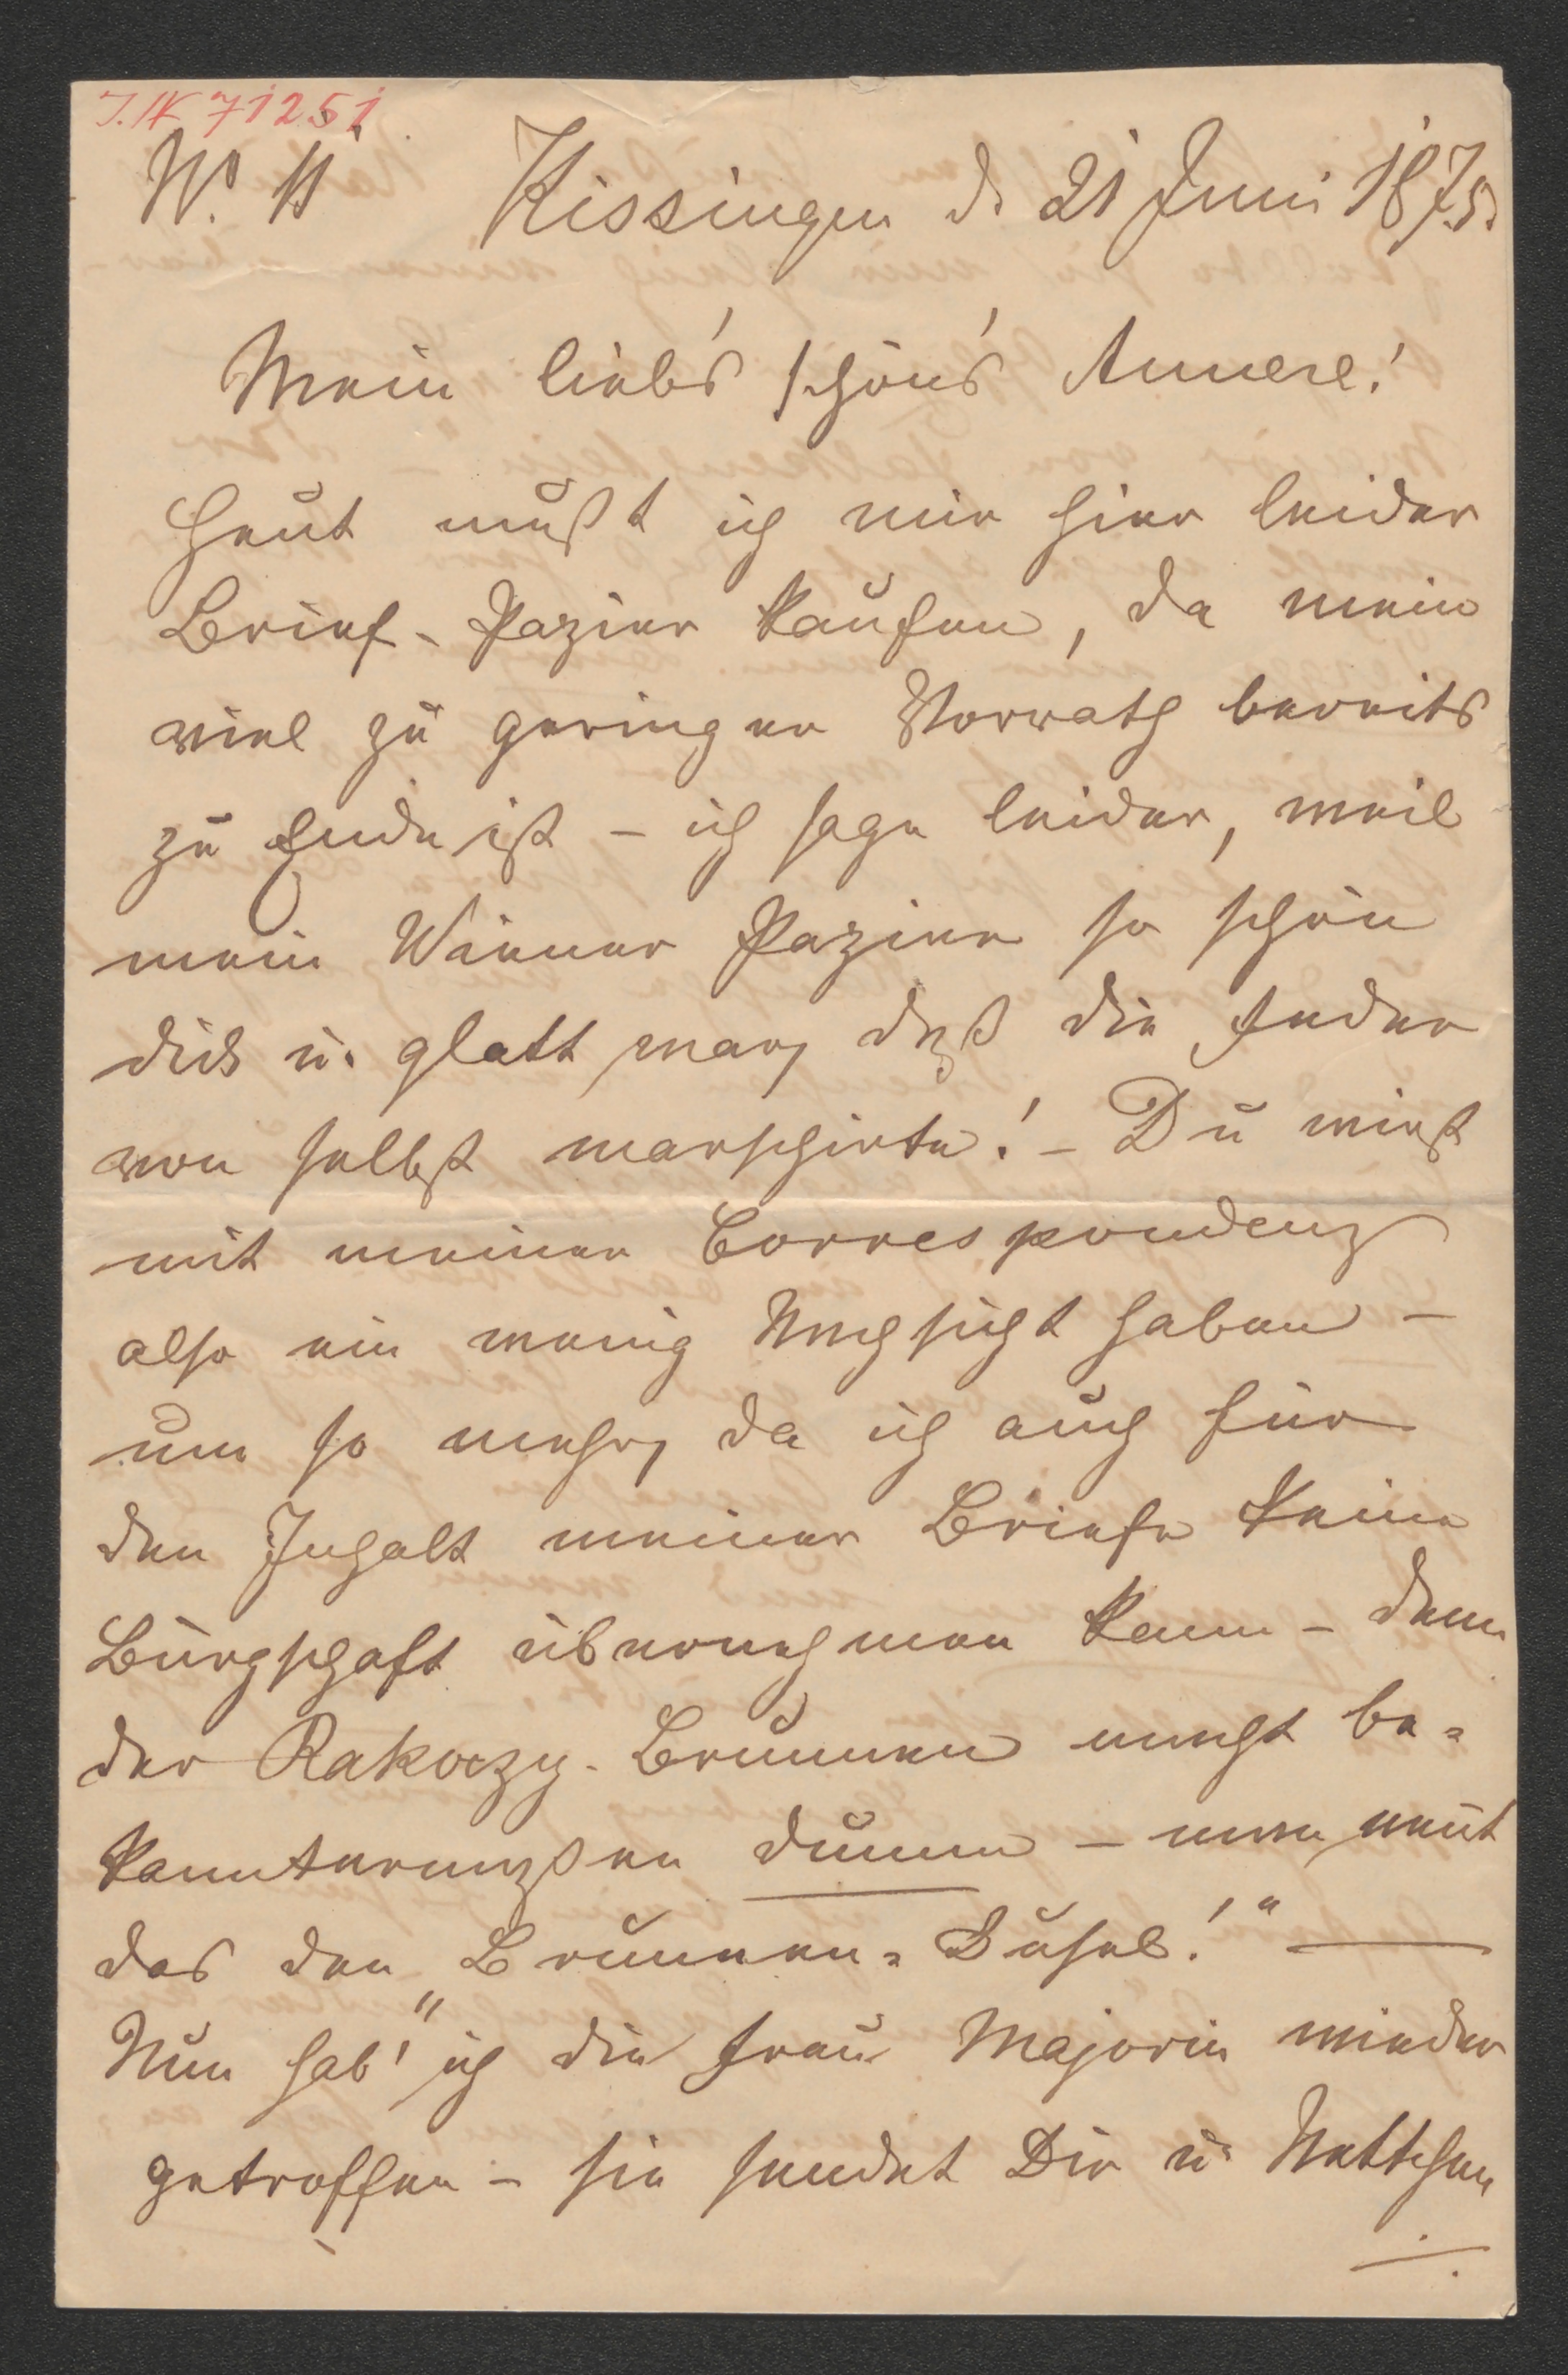 J.N 71251
Nº. 11 Kissingen d. 21 Juni 1875.
Mein lieb's schön's Annerl!
Heut mußt ich mir hier leider
Brief-Papier kaufen, da mein
viel zu geringer Vorrath bereits
zu Ende ist – ich sage leider, weil
mein Wiener Papier so schön
dick u. glatt war, daß die Feder
von selbst marschirte! – Du wirst
mit meiner Correspondenz
also ein wenig Nachsicht haben –
um so mehr, da ich auch für
den Inhalt meiner Briefe keine
Bürgschaft übernehmen kann – denn
der Rakoczy-Brunnen macht be=
kanntermaßen dumm – man nennt
das den „Brunnen=Dusel!" —
Nun hab' ich die Frau Majorin wieder
getroffen – sie sendet Dir u. Nettchen